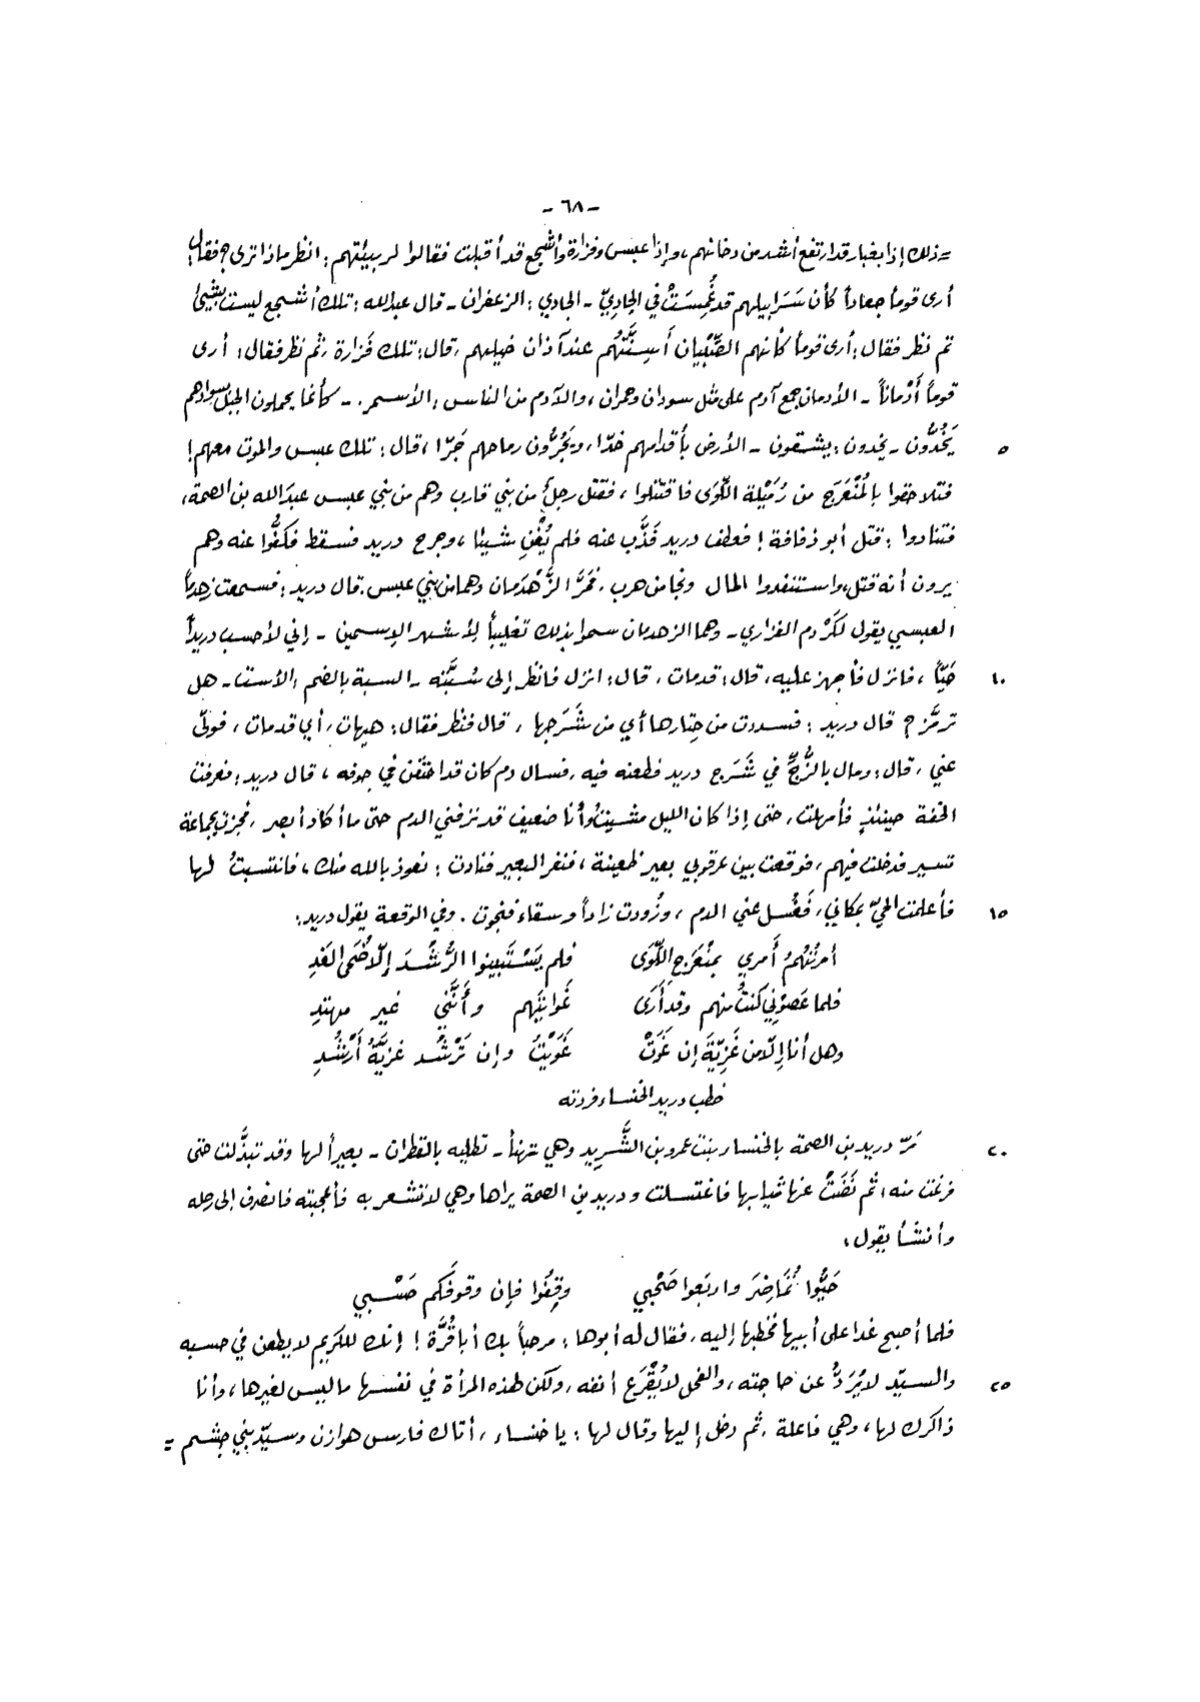 - ٦٨ -
= ذلك إذا بغبار قد ارتفع أشد من دخانهم، وإذا عبس وفزارة وأشجع قد أقبلت فقالوا لربيئتهم: انظر ماذا ترى؟ فقال:
أرى قوماً جعاداً كأن سَرَابيلهم قد غُمِسَتْ في الجادِيّ - الجادي: الزعفران - قال عبدالله: تلك أشجع ليست بشيئ
ثم نظر فقال: أرى قوماً كأنهم الصِّبيان أَسِنَّتُهم عند آذان خيلهم، قال: تلك فَزارة، ثم نظر فقال: أرى
قوماً أُدْماناً - الأدمان جمع آدم على مثل سودان وحمران، والآدم من الناس: الأسمر. - كأنما يحملون الجبل بسوادهم
٥ يَخُدُّون - يخدون: يشقون - الأرض بأقدامهم خدّا، ويَجُرُّون رماحهم جَرّا، قال: تلك عبس والموت معهم!
فتلاحقوا بالمُنْعَرَج من رُمَيْلة اللِّوَى فاقتتلوا، فقتل رجلٌ من بني قارب وهم من بني عبس عبدَالله بن الصمة،
فتنادوا: قتل أبو ذفافة! فعطف دريد فَذَّب عنه فلم يُغْنِ شيئا، وجرح دريد فسقط فكَفُّوا عنه وهم
يرون أنه قتل، واستنفدوا المال ونجا من هرب، فمَرَّ الزَّهْدَمان وهما من بني عبس. قال دريد: فسمعت زهدماً
العبسي يقول لكَرْدم الفزاري - وهما الزهدمان سموا بذلك تغليباً لأشهر الإسمين - إني لأحسب دريداً
١٠ حَيّاً، فانزل فأجهز عليه، قال: قد مات، قال: انزل فانظر إلى سُبَّتِه - السبة بالضم: الأست - هل
ترمَّز؟ قال دريد: فسددت من حِتارها أي من شَرَجها، قال فنظر فقال: هيهات، أي قد مات، فولّى
عني، قال: ومال بالزُّجِّ في شَرَج دريد فطعنه فيه، فسال دم كان قد احتقن في جوفه، قال دريد: فعرفت
الخفة حينئذٍ فأمهلت، حتى إذا كان الليل مشيتُ وأنا ضعيف قد نزفني الدم حتى ما أكاد أبصر، فجزت بجماعة
تسير فدخلت فيهم، فوقعت بين عرقوبي بعير ظعينة، فنفر البعير فنادت: نعوذ بالله منك، فانتسبتُ لها
١٥ فأعلمت الحيّ بمكاني، فَغُسل عني الدم، وزُودت زاداً وسقاءً فنجوت. وفي الوقعة يقول دريد:
أمرتُهُمُ أَمري بمُنْعَرَج اللِّوَى فلم يَسْتَبينوا الرُّشْدَ إلّا ضُحَى الغَدِ
فلما عَصَوْني كنتُ منهم وقد أَرَى غَوايتَهم وأَنَّني غير مهتدِ
وهل أنا إلّا من غَزِيَّةَ إن غَوَتْ غَوَيْتُ وإن تَرْشُد غزيَّةُ أَرْشُدِ
خطب دريد الخنساء فردته
٢٠ مَرّ دريد بن الصمة بالخنساء بنت عمرو بن الشَّرِيد وهي تهنأ - تطليه بالقطران - بعيراً لها وقد تبذَّلت حتى
فرغت منه، ثم نَضَتْ عنها ثيابها فاغتسلت ودريد بن الصمة يراها وهي لا تشعر به فأعجبته فانصرف إلى رحله
وأنشأ يقول:
حَيُّوا تُمَاضِرَ واربَعوا صَحْبي وقِفُوا فإن وقوفَكم حَسْبي
فلما أصبح غدا على أبيها فخطبها إليه، فقال له أبوها: مرحباً بك أبا قُرَّة! إنك للكريم لا يطعن في حسبه
٢٥ والسيّد لا يُرَدُّ عن حاجته، والفحل لا يُقْرَع أنفه، ولكن لهذه المرأة في نفسها ما ليس لغيرها، وأنا
ذاكرك لها، وهي فاعلة، ثم دخل إليها وقال لها: يا خنساء، أتاك فارس هوازن وسيّد بني جشم =